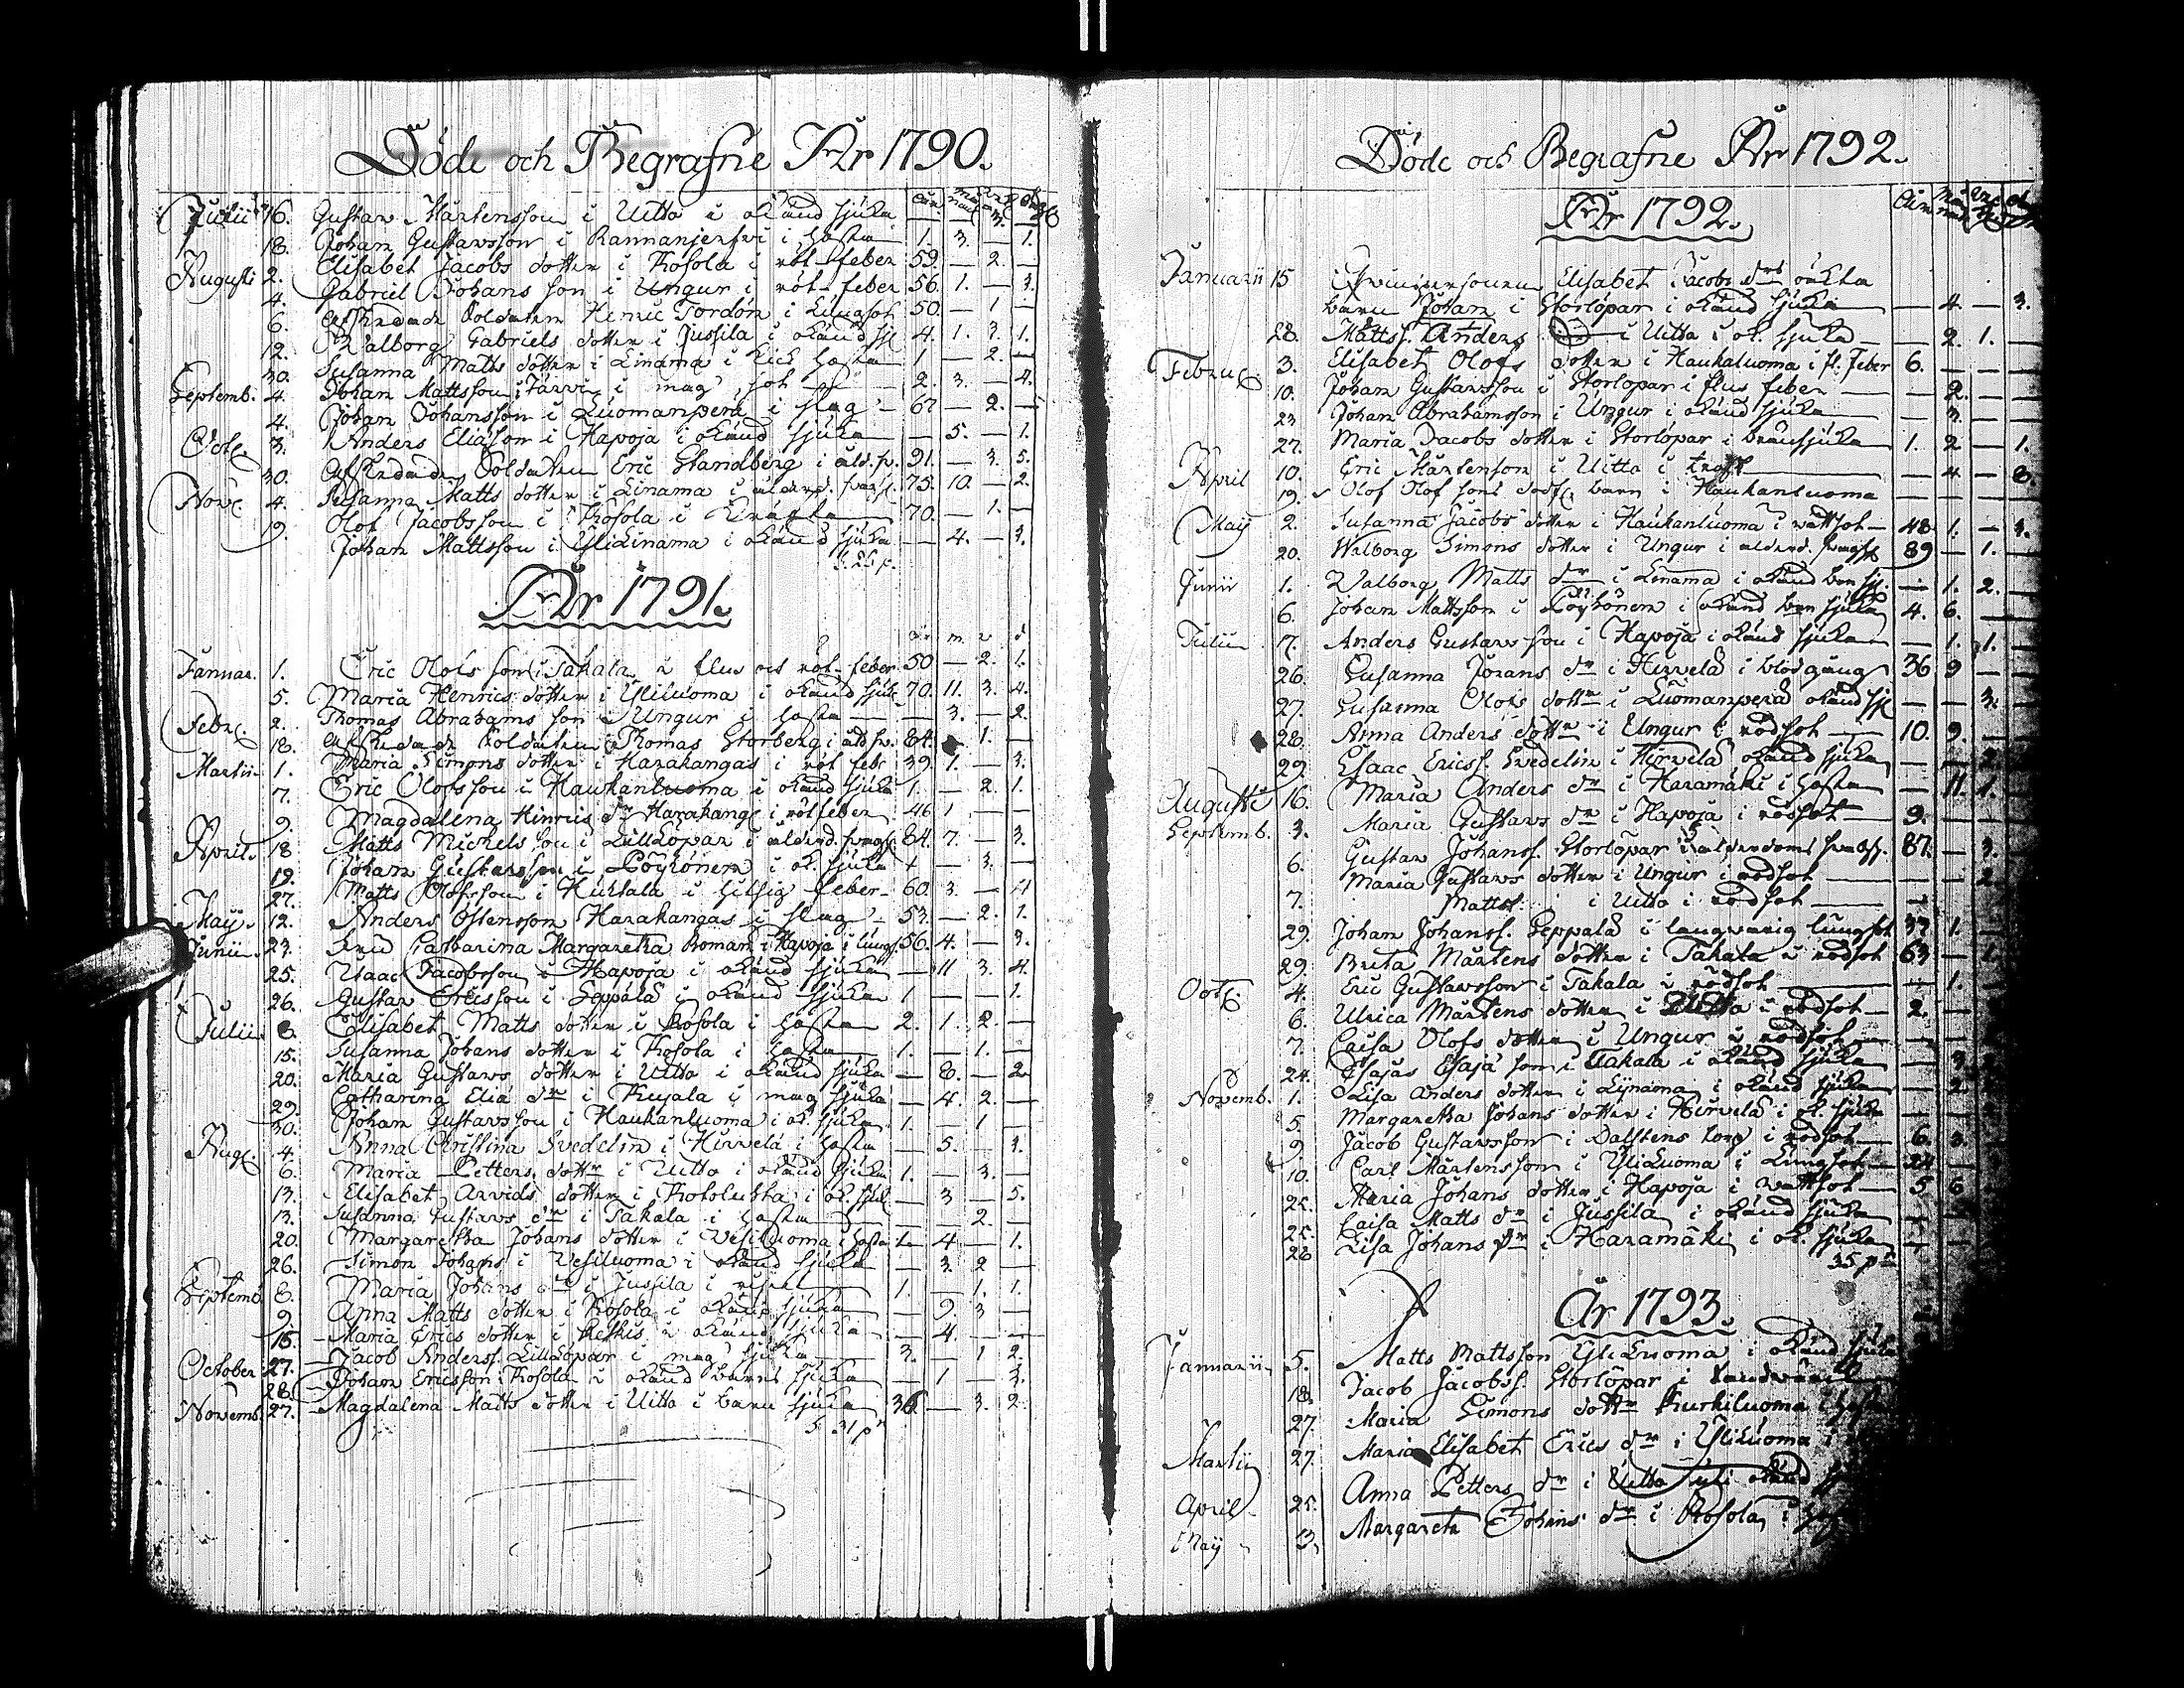 Döde och Begrafne År 1790.
Julii 16. Gustav Mårtensson i Uitto i okänd sjuka — — 3. —
18. Johan Gustavsson i Rannanjerfvi i hosta 1. 3. — 1.
Augusti 2. Elisabet Jacobs dotter i Kosola i röt feber 59 — 2. —
4. Gabriel Johans son i Ungur i röt feber 56. 1. — 3.
6. Afskedade Soldaten Henric Tordön i Lungsot 50. — 1 —
12. Walborg Gabriels dotter i Jussila i okänd sj. 4. 1. 3. 1.
30. Susanna Matts dotter i Linama i Kick hosta 1 — 2. —
Septemb. 4. Johan Mattsson i Järvi i mag sot 2. 3. — 4.
4. Johan Johansson i Luomanperä i slag 67 — 2. —
Octo. 3. Anders Eliasson i Hapoja i okänd sjuka — 5. — 1.
30. Afskedade Soldaten Eric Strandberg i åld. sv. 91. — 3. 5.
Nov. 4. Susanna Matts dotter i Linama i ålderd. svagh. 75. 10. — 2.
9. Olof Jacobsson i Kosola i 70. — 1. —
Johan Mattsson i Ylilinama i okänd sjuka — 4. — 3.
S. 25 p.
År 1791.
år m. v d
Januar. 1. Eric Olofs son i Takala i flus och röt feber 50 — 2. 1.
5. Maria Henrics dotter i Yliluoma i okänd sjuk. 70. 11. 3. 4.
Febr. 2. Thomas Abrahams son i Ungur i hosta — 3. — 2.
18. Afskedade Soldaten Thomas Storberg i åld. sv. 84. 1. —
Martii 1. Maria Simons dotter i Harakangas i röt febr 39. 1. — 3.
7. Eric Olofsson i Haukanluoma i okänd sjuka 1. — 2. 1.
9. Magdalena Hinrics dr Harakang i röt feber 46 1 — —
April 18 Matts Mickels son i Lillkopar i ålderd. svagh. 84. 7. — 3.
19. Johan Gustavsson i Pöyhönen i ok. sjuka — 3. —
27. Matts Olofsson i Huhtala i hitsig feber 60. 3. — 4
May. 12. Anders Östensson Harakangas i slag 53. — 2. 1.
Junii 23. Catharina Margaretha Roman i Hapoja i lungs. 56. 4. — 3.
25. Isaac Jacobsson i Hapoja i okänd sjuka — 11 3. 4.
26. Gustav Ericsson i Seppälä i okänd sjuka 1 — — 1.
Julii 8. Elisabet Matts dotter i Kosola i hosta 2. 1. 2. —
15. Susanna Johans dotter i Kosola i hosta 1. — 1. —
20. Maria Gustavs dotter i Uitto i okänd sjuka — 8. — 2.
29. Catharina Elia dr i Kujala i mag sjuka — 4. 2. —
30. Johan Gustavsson i Haukanluoma i ok. sjuka 1. — 1 —
Aug. 4. Anna Christina Svedelin i Hirvelä i hosta — 5. — 3.
6. Maria Petters dottr i Uitto i okänd sjuka 1. — 3. —
13. Elisabet Arvids dotter i Kokoluhta i ok. sjuk — 3 — 5.
13. Susanna Gustavs dr i Takala i hosta — — 2. —
20. Margaretha Johans dotter i Vesiluoma i hosta — 4 — 1.
26. Simon Johans i Vesiluoma i okänd sjuka — 3. 2 —
Septemb. 8. Maria Johans dr i Jussila i 1. — 1. 1.
9. Anna Matts dotter i Kosola i okänd sjuka — 9. 3 —
15. Maria Erics dotter i okänd sjuka — 4. — —
October 27. Jacob Anderss. Lillkopar i mag sjuka 3. — 1 2.
28. Johan Ericsson Kosola i okänd barns sjuka — 1 — 3.
Novemb. 27. Magdalena Matts dotter i Uitto i barn sjuka 36. — 3. 2
S. 31 p.
Döde och Begrafne År 1792.
År 1792.
Januarii 15 Elisabet Jacobs drs oäkta
barn Johan i Storlopar i okänd sjuka — 4. — 3.
28. Mattss. Anders i Uitto i ok. sjuka — 2. 1. —
Febru. 3. Elisabet Olofs dotter i Haukaluoma i fl. feber 6. — — —
10. Johan Gustavsson i Storlopar i flus feber — 2. — —
23 Johan Abrahamsson i Ungur i okänd sjuka — 3. — —
27. Maria Jacobs dotter i Storlopar i bränsjuka 1. 2 — 1.
April 10. Eric Mårtenson i Uitto i — 4. — 8.
19. Olof Olof sons dödf. barn i Haukanluoma — — — —
May 2. Susanna Jacobs dotter i Haukanluoma i wattsot 48 1. — 3.
20. Walborg Simons dotter i Ungur i ålderd. svagh 89 — 1. —
Junii 1. Walborg Matts dr i Linama i okänd barn sj. — 1. 2. —
6. Johan Mattsson i Pöyhönen i okänd barn sjuka 4. 6. —
Julii 7. Anders Gustavsson i Hapoja i okänd sjuka — 1. 1.
26. Susanna Jörans dr i Hirvelä i blodgång 36 9 —
27. Susanna Olofs dottr i Luomanperä okänd sj. — — 3.
28. Anna Anders dottr i Ungur i rödsot 10. 9. —
29 Esaac Ericss. Svedelin i Hirvelä okänd sjuka — — 2.
Augusti 16. Maria Anders dr i Haramäki i hosta — 11. 1.
Septemb. 3. Maria Gustavs dr i Hapoja i rödsot 9. —
6. Gustav Johanss. Storlopar i ålderdoms svagh. 87. — 3.
7. Maria Gustavs dotter i Ungur i rödsot — — 2.
29. Mattss. i Uitto i rödsot —
29. Johan Johanss. Seppälä i langvarig lungsot 37 1.
Brita Mårtens dotter i Takala i rödsot 63 — 1.
Oct. 4. Eric Gustavsson i Takala i rödsot — 1.
6. Ulrica Mårtens dotter i Uitto i rödsot 2. —
7. Caisa Olofs dotter i Ungur i rödsot —
24. Esajas Esajä son i Takala i okänd sjuka — 3
Novemb. 1. Lisa Anders dotter i Lynama i okänd sjuka — 2
5. Margaretha Johans dotter i Hirvelä i ok. sjuka —
9. Jacob Gustavsson i Dalstens torp i rödsot 6. 3.
10. Carl Mårtensson i Yliluoma i Lungsot 24 —
25. Maria Johans dotter i Hapoja i wattsot 5 6
25. Caisa Matts dr i Jussila i okänd sjuka —
28 Lisa Johans dr i Haramäki i ok. sjuka —
35 p
År 1793.
Januarii 5. Matts Mattsson Yliluoma i okänd sjuka
18. Jacob Jacobss. Storlopar i
27. Maria Simons dottr Kurkiluoma i
Martii 27. Maria Elisabet Erics dr i Yliluoma i
April 25. Anna Petters dr i Uitto okänd
May 3. Margareta Johans dr i Kosola i